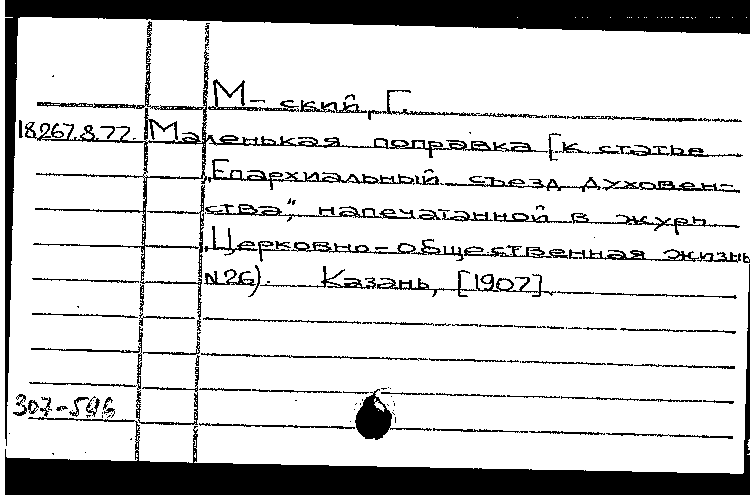 М-ский, Г.
18.267.8.77. Маленькая поправка [к статье
„Епархиальный съезд духовен-
ства“, напечатанной в журн.
„Церковно-общественная жизнь
N26). Казань, [1907].
307-596